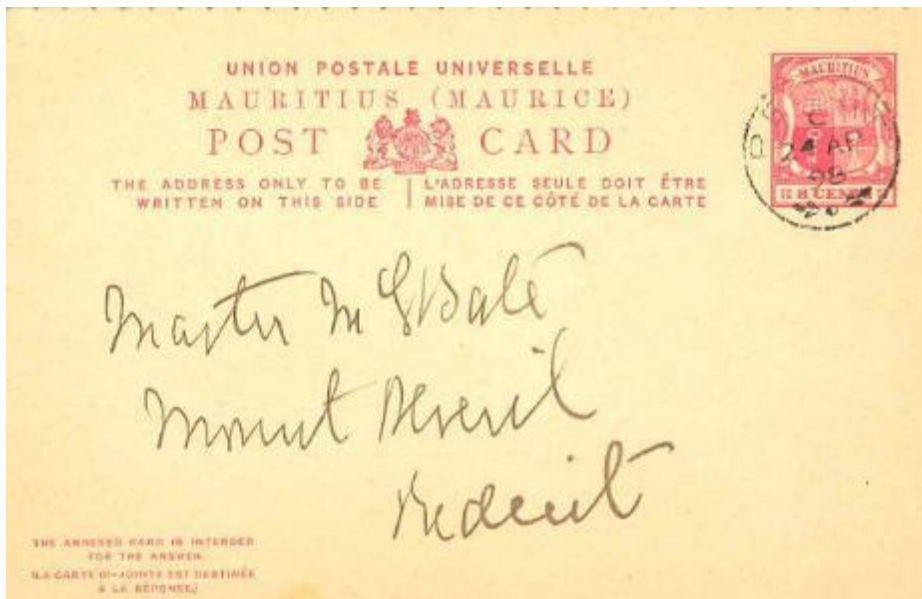 UNION POSTALE UNIVERSELLE
MAURITIUS (MAURICE)
POST CARD
THE ADDRESS ONLY TO BE
WRITTEN ON THIS SIDE
L'ADRESSE SEULE DOIT ÊTRE
MISE DE CE CÔTÉ DE LA CARTE
MAURITIUS
8 CENTS
C
24 AP
98
Master M
Mount
THE ANNEXED CARD IS INTENDED
FOR THE ANSWER.
(LA CARTE CI-JOINTE EST DESTINÉE
À LA RÉPONSE.)